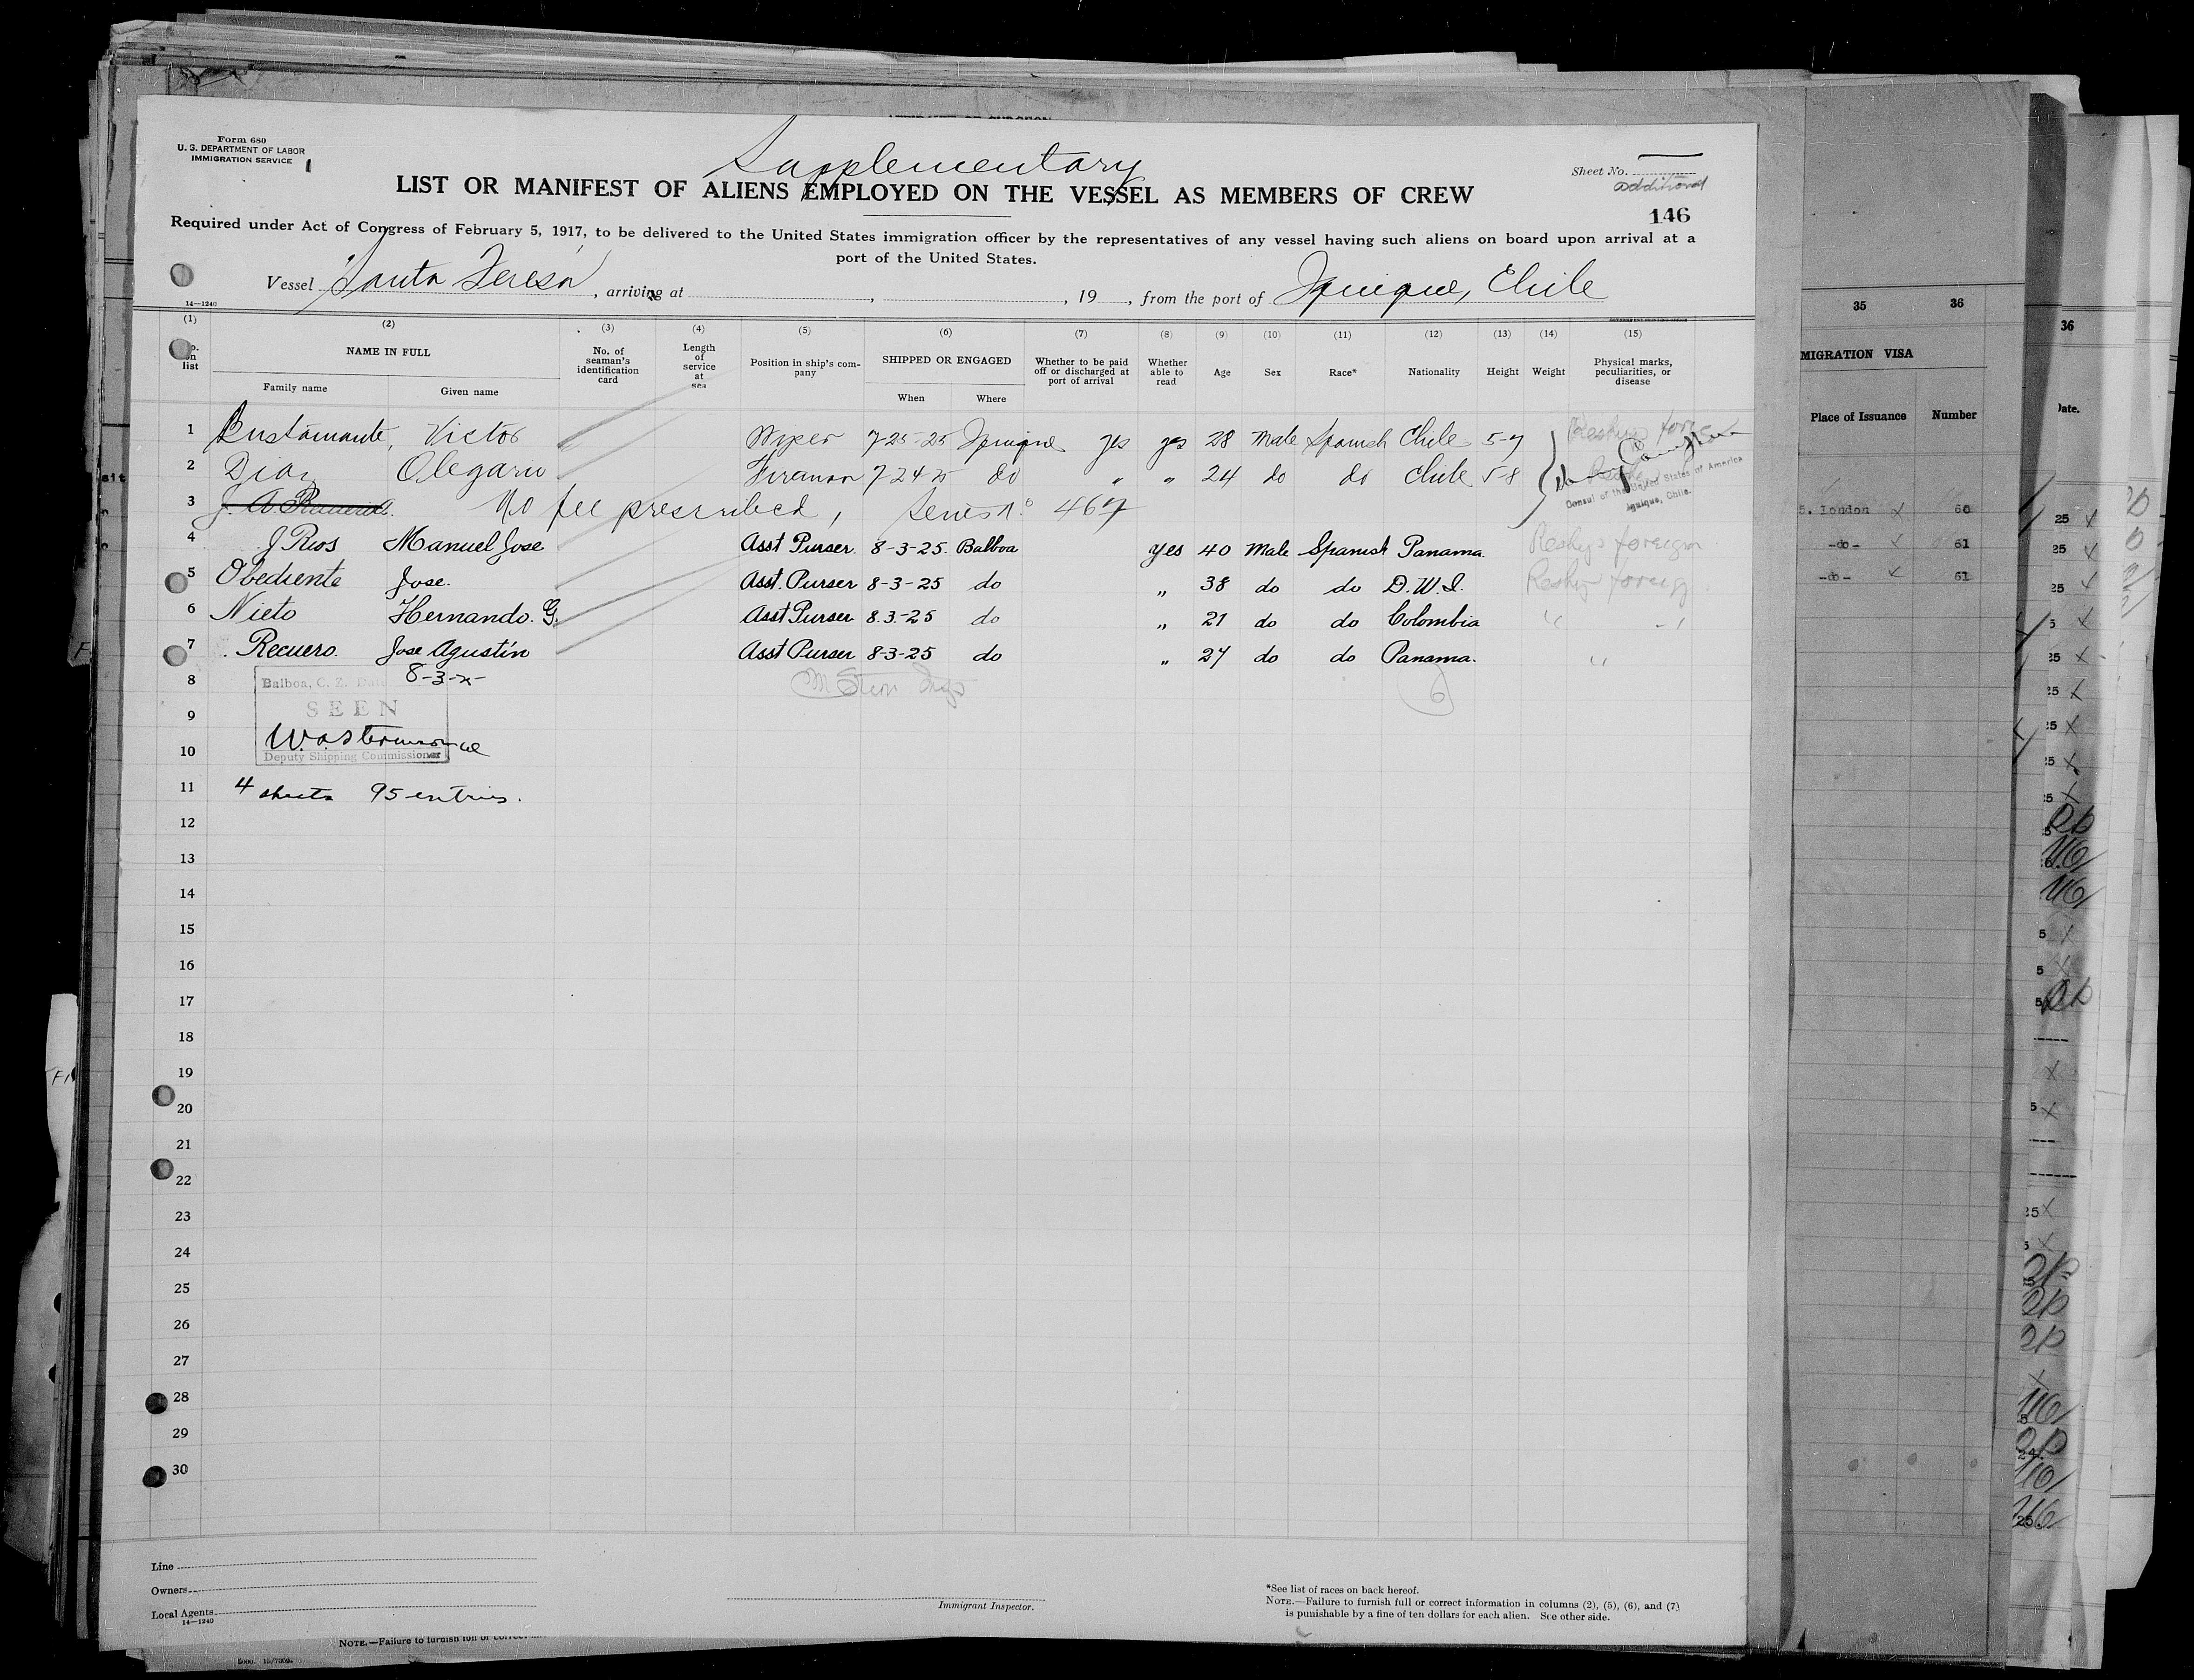 Form 680
U. S. DEPARTMENT OF LABOR
IMMIGRATION SERVICE
1
Supplementary
Sheet No.
additional
LIST OR MANIFEST OF ALIENS EMPLOYED ON THE VESSEL AS MEMBERS OF CREW
146
Required under Act of Congress of February 5, 1917, to be delivered to the United States immigration officer by the representatives of any vessel having such aliens on board upon arrival at a
port of the United States.
Vessel "Santa Teresa", arriving at , , 19 , from the port of Iquique, Chile
14—1240
(1) (2) (3) (4) (5) (6) (7) (8) (9) (10) (11) (12) (13) (14) (15)
No. on list
NAME IN FULL
Family name
Given name
No. of seaman's identification card
Length of service at sea
Position in ship's company
SHIPPED OR ENGAGED
When
Where
Whether to be paid off or discharged at port of arrival
Whether able to read
Age
Sex
Race*
Nationality
Height
Weight
Physical marks, peculiarities, or disease
1 Bustamante, Victor Wiper 7-25-25 Iquique yes yes 28 Male Spanish Chile 5-7
2 Diaz Olegario Fireman 7-24-25 do " " 24 do do Chile 5-8
Consul of the United States of America
Iquique, Chile.
3 No fee prescribed, Service No 467
4 J Rios Manuel Jose Asst Purser. 8-3-25. Balboa yes 40 Male Spanish Panama. Reship foreign
5 Obediente Jose. Asst. Purser 8-3-25 do " 38 do do D.W.I. Reship foreign
6 Nieto Hernando. G. Asst Purser 8.3-25 do " 21 do do Colombia " "
7 Recuero. Jose Agustin Asst Purser 8-3-25 do " 27 do do Panama. "
8
Balboa, C. Z. Date 8-3-25
SEEN
9
10
Deputy Shipping Commissioner
6
11 4 sheets 95 entries.
12
13
14
15
16
17
18
19
20
21
22
23
24
25
26
27
28
29
30
Line
Owners
Local Agents
14—1240
Immigrant Inspector.
*See list of races on back hereof.
NOTE.—Failure to furnish full or correct information in columns (2), (5), (6), and (7)
is punishable by a fine of ten dollars for each alien. See other side.
NOTE.—Failure to furnish full or correct
35 36
MIGRATION VISA
Place of Issuance Number
S. London x 60
-do- x 61
-do- x 61
36
Date.